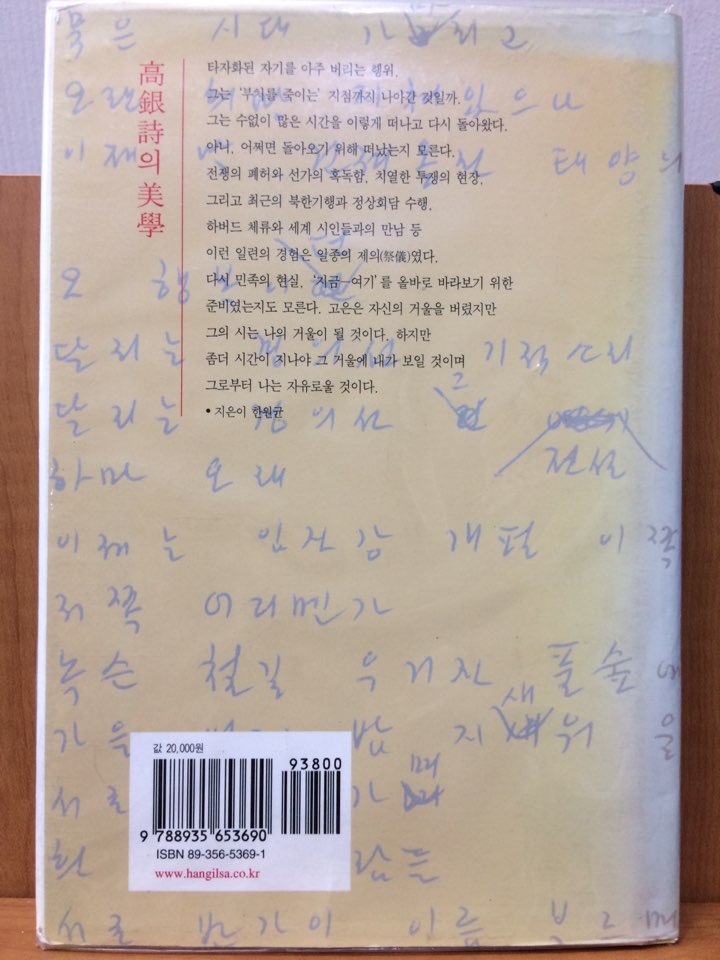 高銀詩의 美學
타자화된 자기를 아주 버리는 행위.
그는 '부처를 죽이는' 지점까지 나아간 것일까.
그는 수없이 많은 시간을 이렇게 떠나고 다시 돌아왔다.
아니, 어쩌면 돌아오기 위해 떠났는지 모른다.
전쟁의 폐허와 선가의 혹독함, 치열한 투쟁의 현장,
그리고 최근의 북한기행과 정상회담 수행,
하버드 체류와 세계 시인들과의 만남 등
이런 일련의 경험은 일종의 제의(祭儀)였다.
다시 민족의 현실, '지금—여기'를 올바로 바라보기 위한
준비였는지도 모른다. 고은은 자신의 거울을 버렸지만
그의 시는 나의 거울이 될 것이다. 하지만
좀더 시간이 지나야 그 거울에 내가 보일 것이며
그로부터 나는 자유로울 것이다.
• 지은이 한원균
묵은 시대
이제
태양의
오
달리는 경의선 기적소리
달리는 경의선 그
전설
하마 오래
이제는 임진강 개펄 이쪽
저쪽 어리멘가
녹슨 철길 우거진 풀숲에
가을 밤 지새워 울
서로
서로 반가이 이름 부르며
값 20,000원
93800
9 788935 653690
ISBN 89-356-5369-1
www.hangilsa.co.kr